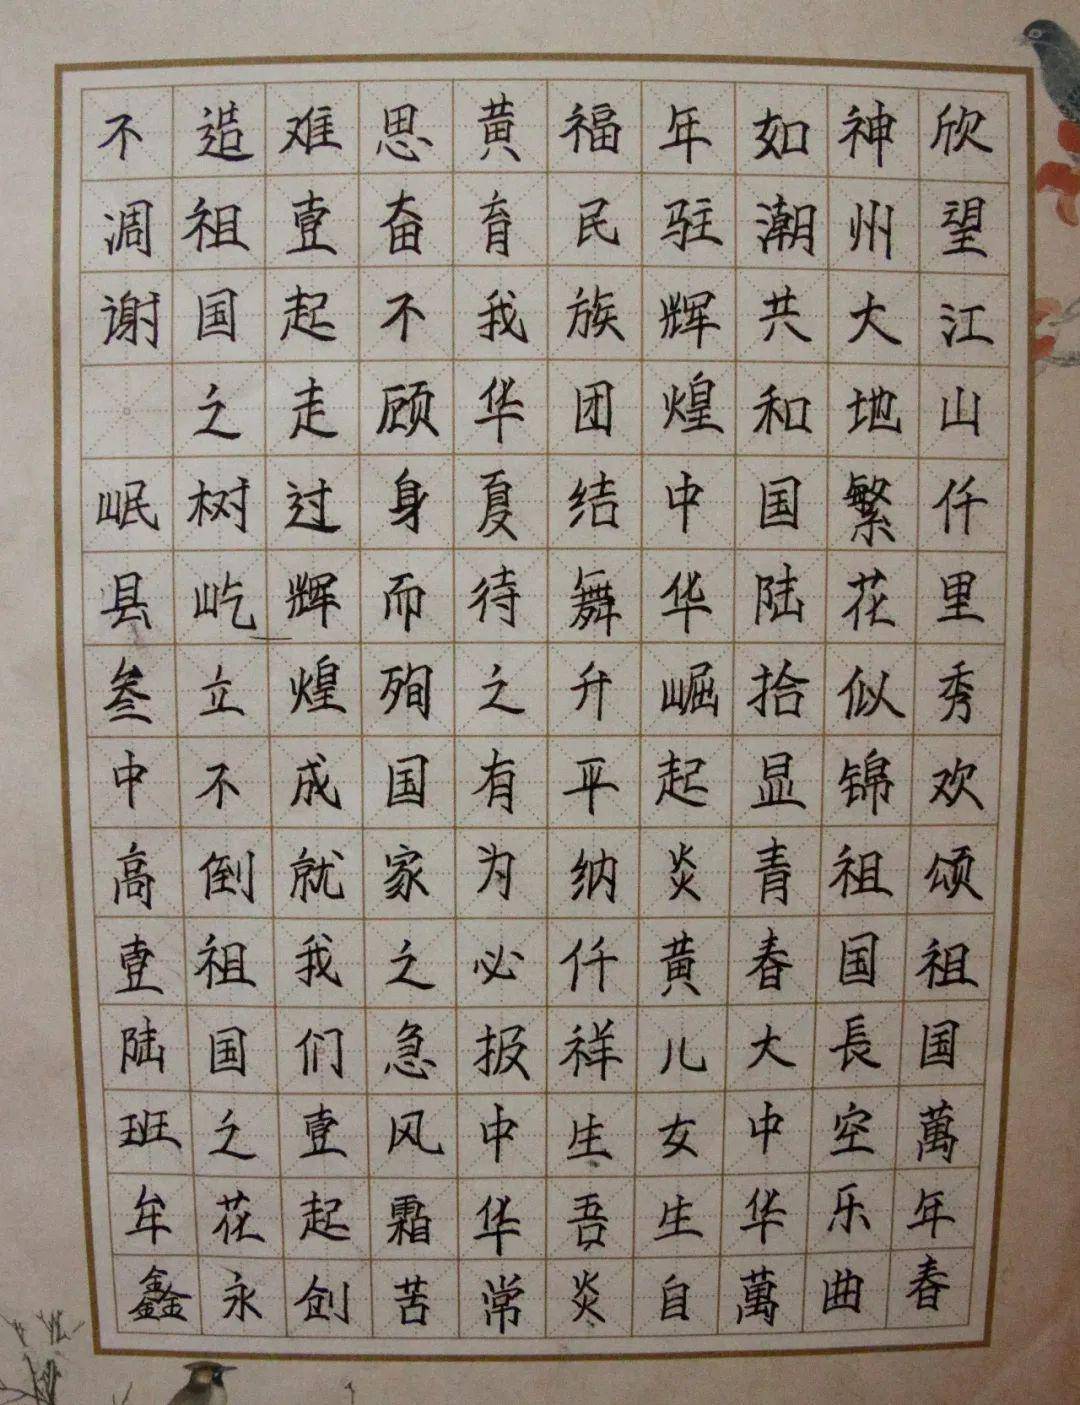 欣望江山仟里秀欢颂祖国萬年春
神州大地繁花似锦祖国長空乐曲
如潮共和国陆拾显青春大中华萬
年驻辉煌中华崛起炎黄儿女生自
福民族团结舞升平纳仟祥生吾炎
黄育我华夏待之有为必报中华常
思奋不顾身而殉国家之急风霜苦
难壹起走过辉煌成就我们壹起创
造祖国之树屹立不倒祖国之花永
不凋谢 岷县叁中高壹陆班牟鑫